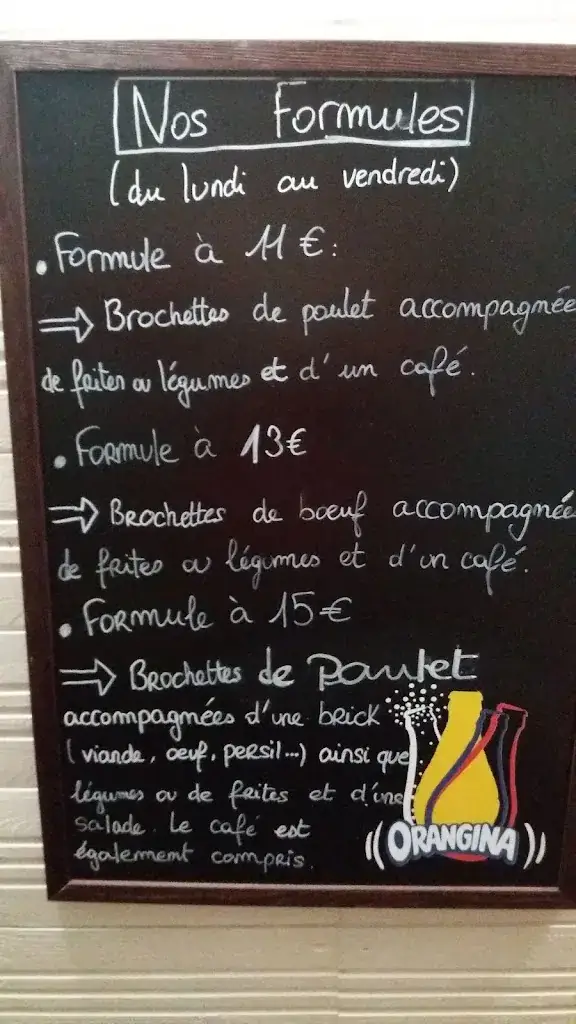 Nos Formules
(du lundi au vendredi)
. Formule à 11 € :
⇒ Brochettes de poulet accompagnée
de frites ou légumes et d'un café.
. Formule à 13€
⇒ Brochettes de bœuf accompagnée
de frites ou légumes et d'un café.
. Formule à 15€
⇒ Brochettes de Poulet
accompagnées d'une brick
(viande, oeuf, persil...) ainsi que
légumes ou de frites et d'une
salade. Le café est
également compris.
ORANGINA